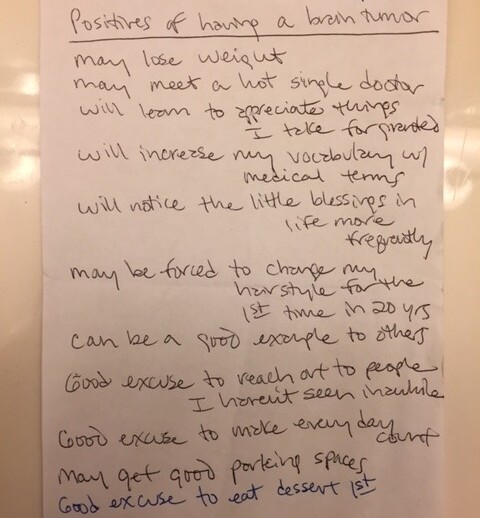 Positives of having a brain tumor
may lose weight
may meet a hot single doctor
will learn to appreciate things
I take for granted
will increase my vocabulary w/
medical terms
will notice the little blessings in
life more
frequently
may be forced to change my
hairstyle for the
1st time in 20 yrs
can be a good example to others
Good excuse to reach out to people
I haven't seen in awhile
Good excuse to make every day
count
May get good parking spaces
Good excuse to eat dessert 1st